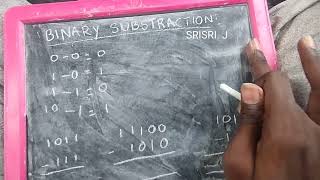 BINARY SUBSTRACTION:
SRISRI J
0-0=0
1-0=1
1-1=0
10-1=1
1011 11100 101
- 111 - 1010